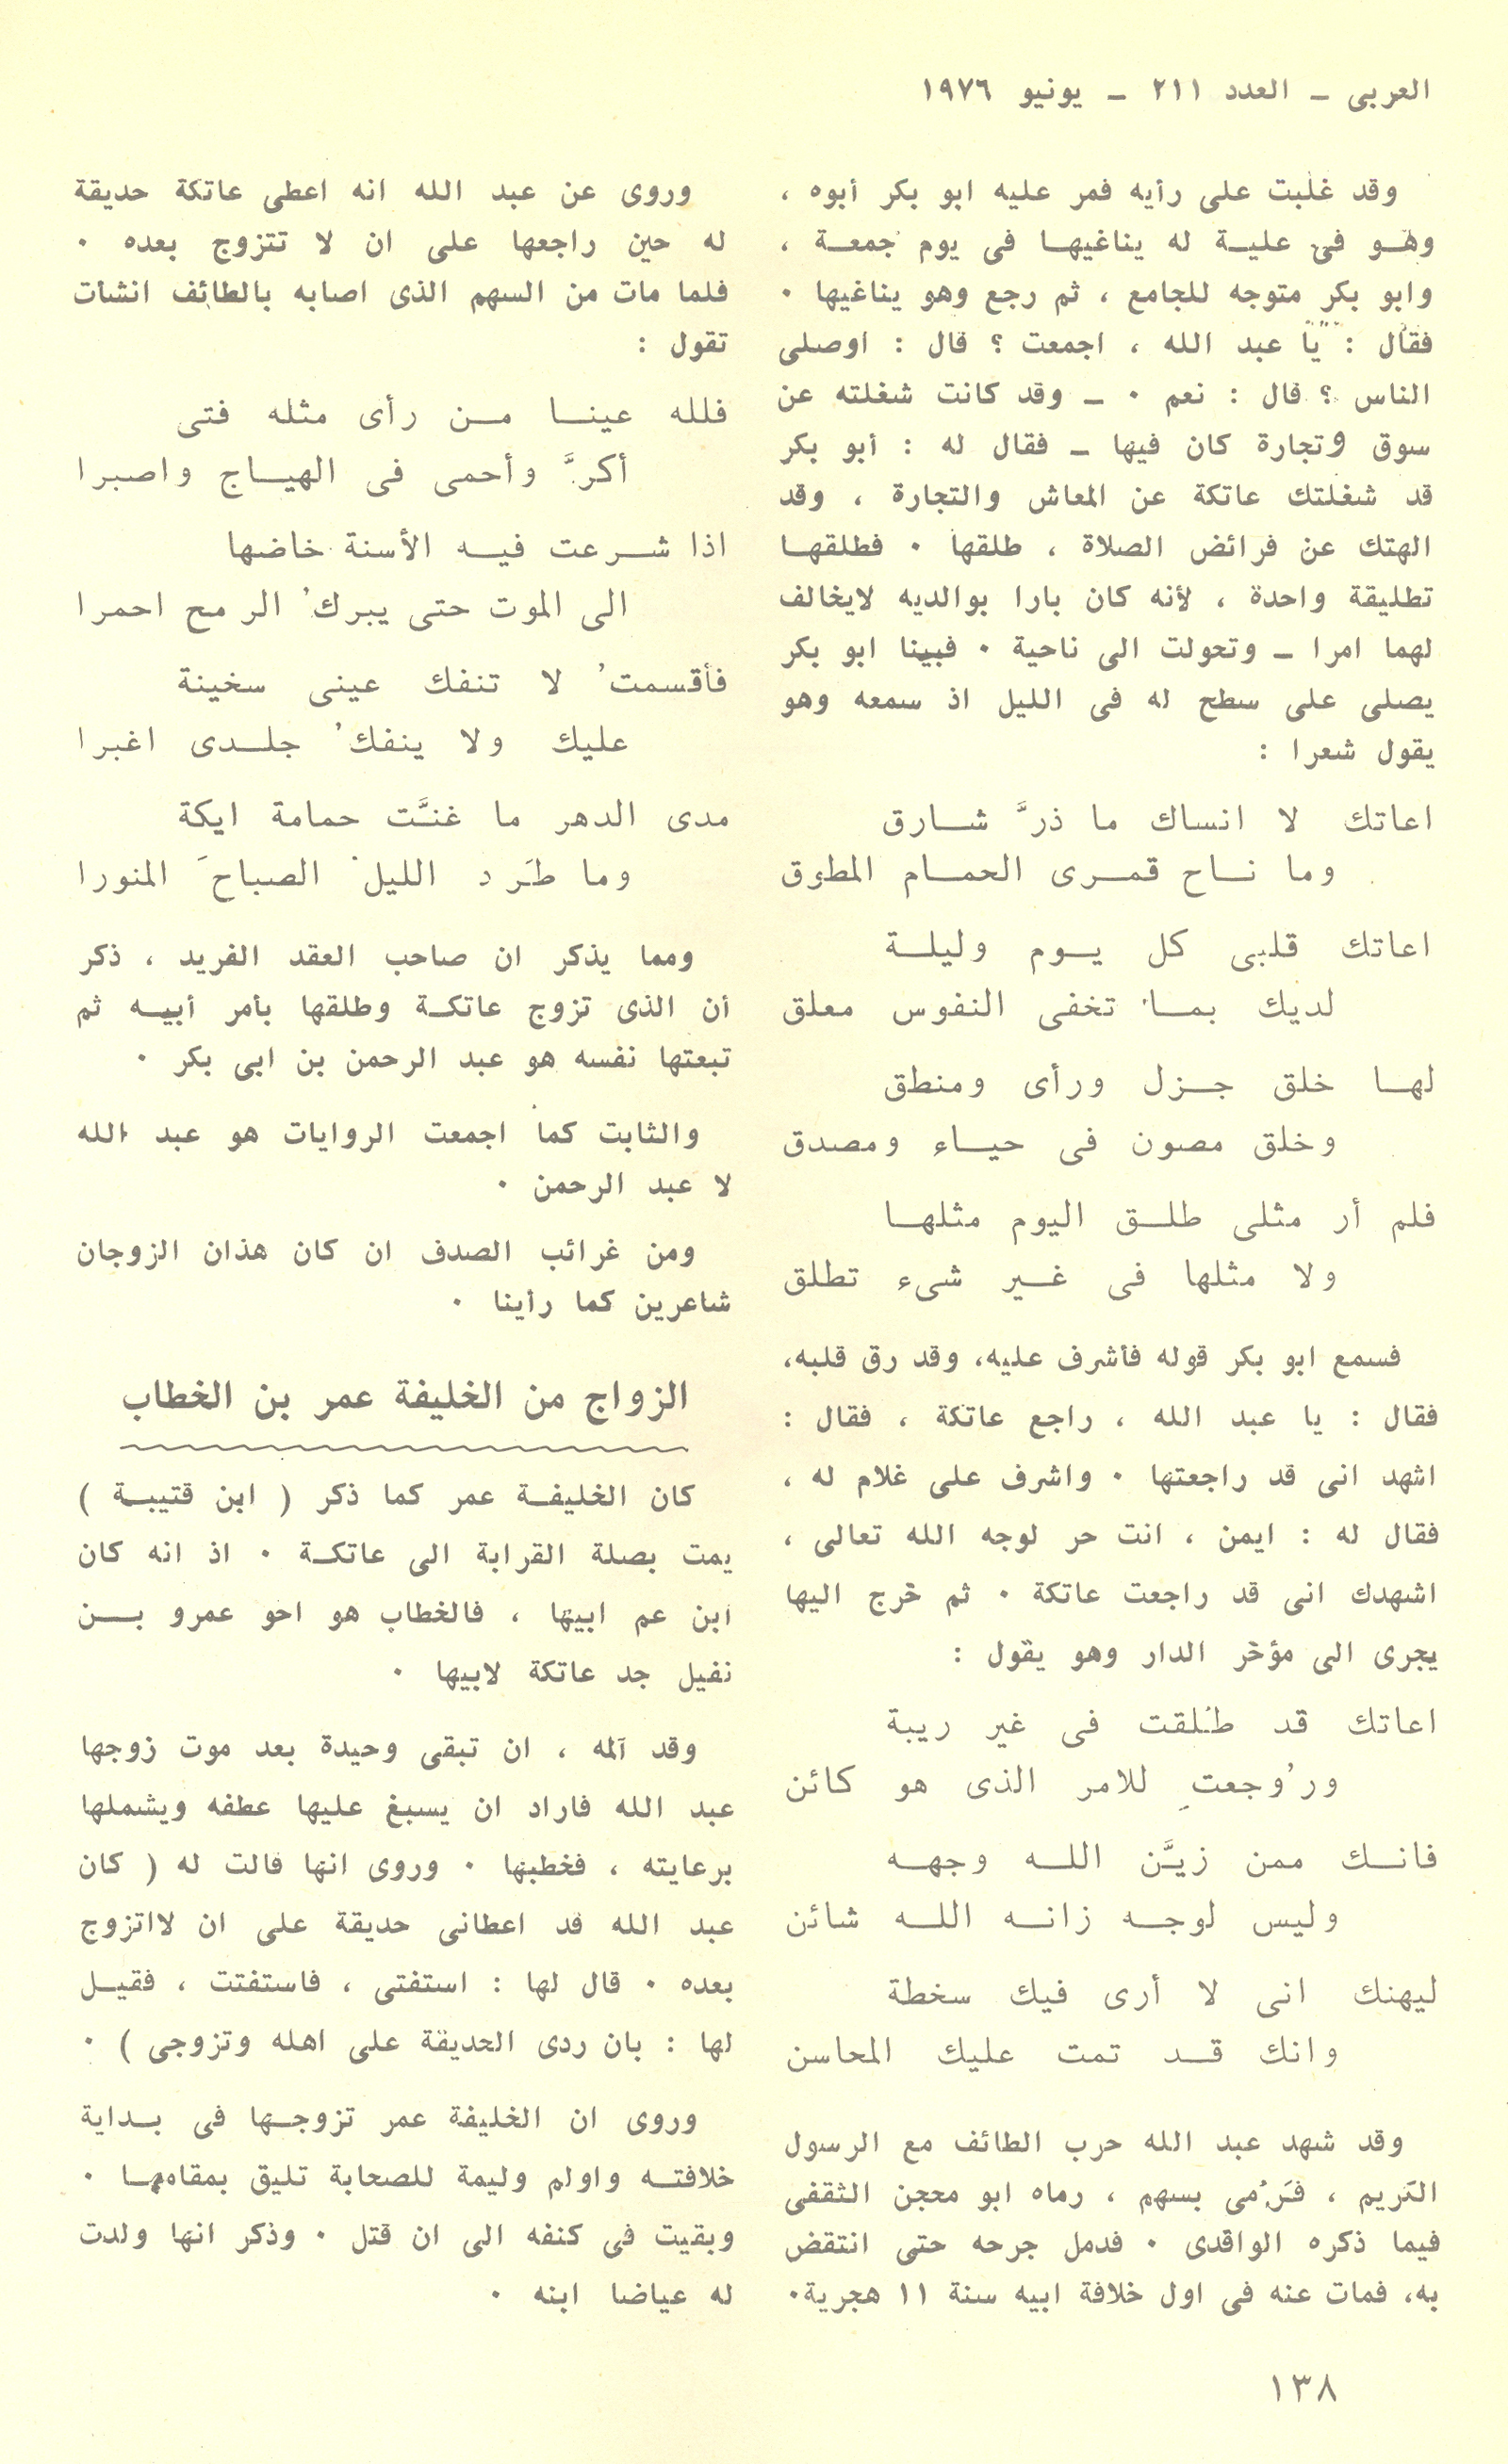 العربى ـ العدد ٢١١ ـ يونيو ١٩٧٦
وقد غلبت على رأيه فمر عليه ابو بكر أبوه ،
وهو فى علية له يناغيها فى يوم جمعة ،
وابو بكر متوجه للجامع ، ثم رجع وهو يناغيها ٠
فقال : يا عبد الله ، اجمعت ؟ قال : اوصلى
الناس ؟ قال : نعم ٠ ـ وقد كانت شغلته عن
سوق وتجارة كان فيها ـ فقال له : أبو بكر
قد شغلتك عاتكة عن المعاش والتجارة ، وقد
الهتك عن فرائض الصلاة ، طلقها ٠ فطلقها
تطليقة واحدة ، لأنه كان بارا بوالديه لايخالف
لهما امرا ـ وتحولت الى ناحية ٠ فبينا ابو بكر
يصلى على سطح له فى الليل اذ سمعه وهو
يقول شعرا :
اعاتك لا انساك ما ذرَّ شارق
وما ناح قمرى الحمام المطوق
اعاتك قلبى كل يوم وليلة
لديك بما تخفى النفوس معلق
لها خلق جزل ورأى ومنطق
وخلق مصون فى حياء ومصدق
فلم أر مثلى طلق اليوم مثلها
ولا مثلها فى غير شىء تطلق
فسمع ابو بكر قوله فأشرف عليه، وقد رق قلبه،
فقال : يا عبد الله ، راجع عاتكة ، فقال :
اشهد انى قد راجعتها ٠ واشرف على غلام له ،
فقال له : ايمن ، انت حر لوجه الله تعالى ،
اشهدك انى قد راجعت عاتكة ٠ ثم خرج اليها
يجرى الى مؤخر الدار وهو يقول :
اعاتك قد طُلقت فى غير ريبة
ورُوجعتِ للامر الذى هو كائن
فانك ممن زيَّن الله وجهه
وليس لوجه زانه الله شائن
ليهنك انى لا أرى فيك سخطة
وانك قد تمت عليك المحاسن
وقد شهد عبد الله حرب الطائف مع الرسول
الكريم ، فرُمى بسهم ، رماه ابو محجن الثقفى
فيما ذكره الواقدى ٠ فدمل جرحه حتى انتقض
به، فمات عنه فى اول خلافة ابيه سنة ١١ هجرية٠
وروى عن عبد الله انه اعطى عاتكة حديقة
له حين راجعها على ان لا تتزوج بعده ٠
فلما مات من السهم الذى اصابه بالطائف انشأت
تقول :
فلله عينا من رأى مثله فتى
أكرَّ وأحمى فى الهياج واصبرا
اذا شرعت فيه الأسنة خاضها
الى الموت حتى يبركُ الرمح احمرا
فأقسمتُ لا تنفك عينى سخينة
عليك ولا ينفكُ جلدى اغبرا
مدى الدهر ما غنَّت حمامة ايكة
وما طَرد الليلُ الصباحَ المنورا
ومما يذكر ان صاحب العقد الفريد ، ذكر
أن الذى تزوج عاتكة وطلقها بأمر أبيه ثم
تبعتها نفسه هو عبد الرحمن بن ابى بكر ٠
والثابت كما اجمعت الروايات هو عبد الله
لا عبد الرحمن ٠
ومن غرائب الصدف ان كان هذان الزوجان
شاعرين كما رأينا ٠
الزواج من الخليفة عمر بن الخطاب
كان الخليفة عمر كما ذكر ( ابن قتيبة )
يمت بصلة القرابة الى عاتكة ٠ اذ انه كان
ابن عم ابيها ، فالخطاب هو اخو عمرو بن
نفيل جد عاتكة لابيها ٠
وقد آلمه ، ان تبقى وحيدة بعد موت زوجها
عبد الله فاراد ان يسبغ عليها عطفه ويشملها
برعايته ، فخطبها ٠ وروى انها قالت له ( كان
عبد الله قد اعطانى حديقة على ان لااتزوج
بعده ٠ قال لها : استفتى ، فاستفتت ، فقيل
لها : بان ردى الحديقة على اهله وتزوجى ) ٠
وروى ان الخليفة عمر تزوجها فى بداية
خلافته واولم وليمة للصحابة تليق بمقامها ٠
وبقيت فى كنفه الى ان قتل ٠ وذكر انها ولدت
له عياضا ابنه ٠
١٣٨